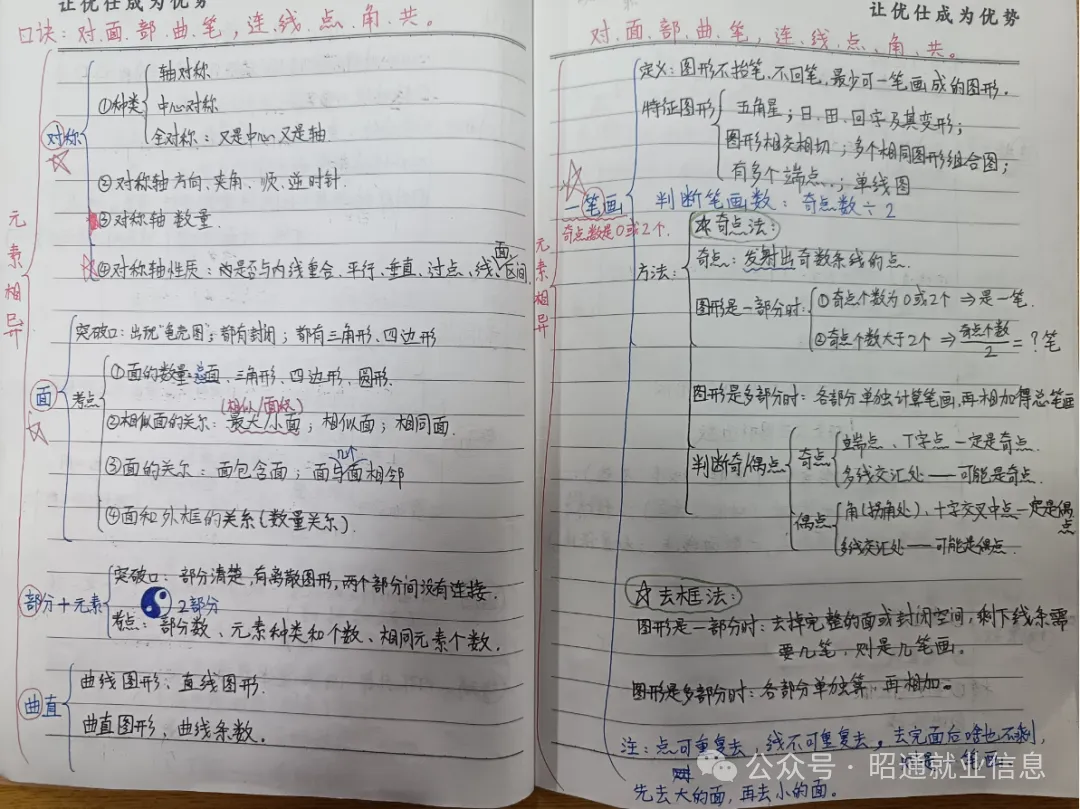 让优仕成为优势
口诀：对.面.部.曲.笔，连.线.点.角.共。
元素相异
对称
①种类
轴对称
中心对称
全对称：又是中心又是轴.
②对称轴方向、夹角、顺、逆时针.
③对称轴 数量.
④对称轴性质：是否与内线重合、平行、垂直、过点、线、面、区间.
面
突破口：出现"龟壳图"；都有封闭；都有三角形、四边形
考点
①面的数量：总面、三角形、四边形、圆形.
(相似/面积)
②相似面的关系：最大/小面；相似面；相同面.
几个
③面的关系：面包含面；面与面相邻
④面和外框的关系(数量关系).
部分+元素
突破口：部分清楚，有离散图形，两个部分间没有连接.
2部分
考点：部分数、元素种类和个数、相同元素个数.
曲直
曲线图形、直线图形.
曲直图形、曲线条数.
让优仕成为优势
对.面.部.曲.笔，连.线.点.角.共。
元素相异
一笔画
奇点数是0或2个.
定义：图形不抬笔、不回笔，最少可一笔画成的图形.
特征图形
五角星；日、田、回字及其变形；
图形相交相切；多个相同图形组合图；
有多个端点.；单线图
判断笔画数：奇点数÷2
方法：
☆奇点法：
奇点：发射出奇数条线的点.
图形是一部分时：
①奇点个数为0或2个 ⇒是一笔.
②奇点个数大于2个 ⇒ 奇点个数/2 = ？笔
图形是多部分时：各部分单独计算笔画，再相加得总笔画
判断奇/偶点
奇点
端点、T字点 一定是奇点.
多线交汇处——可能是奇点.
偶点
角(拐角处)、十字交叉中点一定是偶点
多线交汇处——可能是偶点.
☆去框法：
图形是一部分时：去掉完整的面或封闭空间，剩下线条需
要几笔，则是几笔画。
图形是多部分时：各部分单独算，再相加。
注：点可重复去，线不可重复去。去完面后啥也不剩，
笔画
先去大的面，再去小的面。
公众号·昭通就业信息